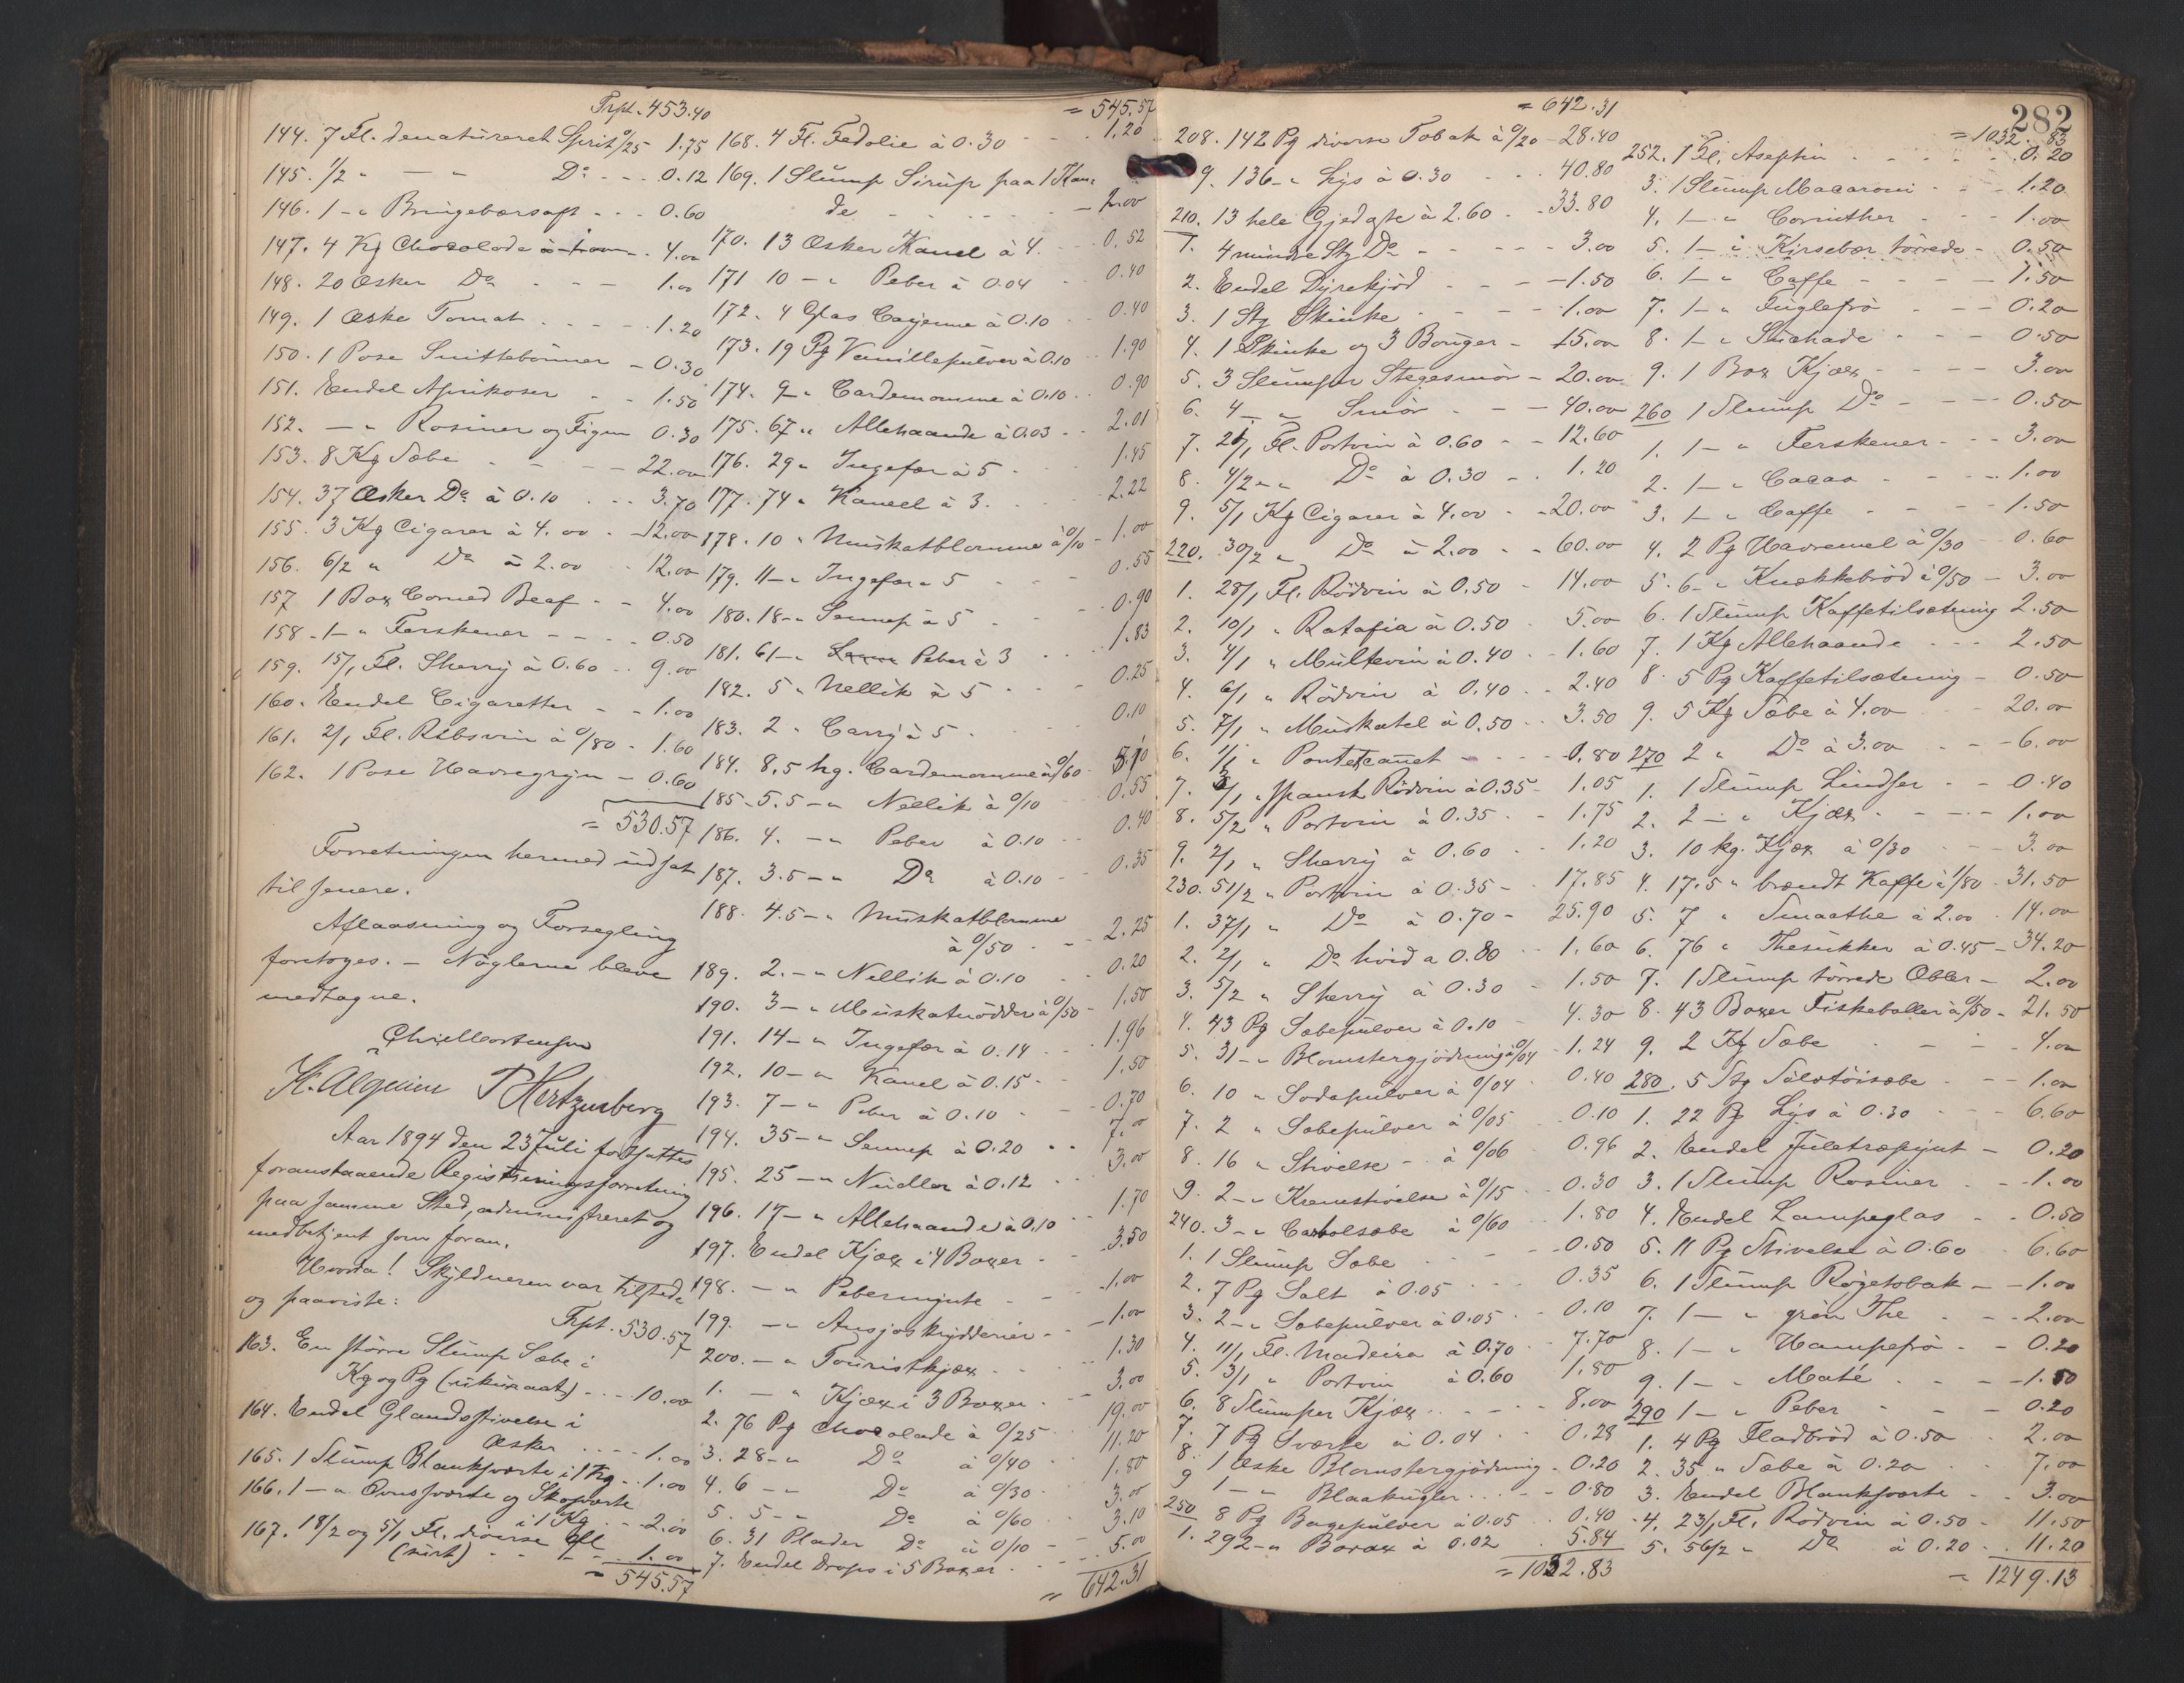 Trpt. 453.40
144. 7 Fl. denatureret Sprit 0/25 1.75
145. 1/2 " — " Do - - - 0.12
146. 1 - " Bringebærsaft - - - 0.60
147. 4 Kg Chocolade - - 4.00
148. 20 Æsker Do - - - 1.00
149. 1 Æske Tomat - - - - 1.20
150. 1 Pose Snittebønner - 0.30
151. Endel Aprikoser - - 1.50
152. — " Rosiner og Figen 0.30
153. 8 Kg Sæbe - - - - 22.00
154. 37 Æsker Do à 0.10 - - - 3.70
155. 3 Kg Cigarer à 4.00 - 12.00
156. 6/2 " Do à 2.00 - 12.00
157 1 Box Corned Beef - - 4.00
158 - 1 - " Ferskener - - - - 0.50
159. 15/1 Fl. Sherry à 0.60 - - 9.00
160. Endel Cigaretter - - 1.00
161. 2/1 Fl. Ribsvin à 0/80 - 1.60
162. 1 Pose Havregryn - 0.60
= 530.57
Forretningen hermed udsat
til senere.
Aflaasning og Forsegling
foretoges. - Nøglerne bleve
medtagne.
Chr. Mortensen
K. Alquien P Hertzenberg
Aar 1894 den 23 Juli fortsattes
foranstaaende Registreringsforretning
paa samme Sted, administreret og
medbetjent som foran.
Hvorda! Skyldneren var tilstede
og paaviste:
Trpt. 530.57
163. En større Slump Sæbe i
Kg og Pg (ukurant) - - - 10.00
164. Endel Glandsstivelse i
Æsker - - - - 1.00
165. 1 Slump Blanksværte i 1 Kg - - 1.00
166. 1 - " Ovnsværte og Skosværte
i 1 Kg - - 2.00
167. 18/2 og 5/1 Fl. diverse Øl
(surt) - - - 1.00
= 545.57
= 545.57
168. 4 Fl. Fedolie à 0.30 - - - 1.20
169. 1 Slump Sirup paa 1 Kan-
de - - - - - - 2.00
170. 13 Æsker Kanel à 4. - - - 0.52
171 10 - " Peber à 0.04 - - 0.40
172. 4 Glas Cayenne à 0.10 - - 0.40
173. 19 Pg Vanillepulver à 0.10 - - 1.90
174. 9 - " Cardemomme à 0.10 - - 0.90
175. 67 " Allehaande à 0.03 - - 2.01
176. 29 " Ingefær à 5 - - 1.45
177. 74 " Kaneel à 3. - - 2.22
178. 10 " Muskatblomme à 0/10 - 1.00
179. 11 - " Ingefær " 5 - - - 0.55
180. 18 - " Sennep à 5 - - 0.90
181. 61 - " Peber à 3 - - - 1.83
182. 5 " Nellik à 5 - - - 0.25
183. 2 " Carry à 5 - - 0.10
184. 8,5 hg. Cardemomme à 0/60 - 5.10
185 - 5.5 - " Nellik à 0/10 0.55
186. 4. - " Peber à 0.10 - - 0.40
187. 3.5 - " Do à 0.10 - - 0.35
188. 4.5 - " Muskatblomme
à 0/50 - - 2.25
189. 2. - " Nellik à 0.10 - - 0.20
190. 3 - " Muskatnødder à 0/50 - 1.50
191. 14 - " Ingefær à 0.14 - - - 1.96
192. 10 - " Kanel à 0.15 - - 1.50
193. 7 - " Peber à 0.10 - - - 0.70
194. 35 - " Sennep à 0.20 - - 7.00
195. 25 - " Nudler à 0.12 - - - 3.00
196. 17 - " Allehaande à 0.10 - - 1.70
197. Endel Kjæx i 4 Boxer - - 3.50
198. - " Pebermynte - - 1.00
199. - " Ansjoskrydderier - - 1.00
200. - " Touristkjæx - - - 1.30
1. — " Kjæx i 3 Boxer - - 3.00
2. 76 Pg Chocolade à 0/25 - 19.00
3. 28 - " Do à 0/40 - 11.20
4. 6 - " Do à 0/30 - 1.80
5. 5 - " Do à 0/60 - 3.00
6. 31 Plader Do à 0/10 - - 3.10
7. Endel Drops i 5 Boxer - - - - 5.00
= 642.31
282
= 642.31
208. 142 Pg diverse Tobak à 0/20 - 28.40
9. 136 - " Lys à 0.30 - - - 40.80
210. 13 hele Gjedoste à 2.60 - - 33.80
1. 4 mindre Stg Do - - - - - 3.00
2. Endel Dyrekjød - - - - 1.50
3. 1 Stg Skinke - - - - 1.00
4. 1 Skinke og 3 Bouger - 15.00
5. 3 Slumper Stegesmør - 20.00
6. 4 - " Smør - - - 40.00
7. 21/1 Fl. Portvin à 0.60 - - 12.60
8. 4/2 - " Do à 0.30 - - 1.20
9. 5/1 Kg Cigarer à 4.00 - - 20.00
220. 30/2 " Do à 2.00 - - 60.00
1. 28/1 Fl. Rødvin à 0.50 - 14.00
2. 10/1 " Ratafia à 0.50 - 5.00
3. 4/1 " Multevin à 0.40 - - 1.60
4. 6/1 " Rødvin à 0.40 - - 2.40
5. 7/1 " Muskatel à 0.50 - - 3.50
6. 1/1 " Pontetcanet - - - - 0.80
7. 3/1 " spansk Rødvin à 0.35 - 1.05
8. 5/2 " Portvin à 0.35 - - 1.75
9. 2/1 " Sherry à 0.60 - - 1.20
230. 51/2 " Portvin à 0.35 - - 17.85
1. 37/1 " Do à 0.70 - 25.90
2. 2/1 " Do hvid a 0.80 - - 1.60
3. 5/2 " Sherry à 0.30 - 1.50
4. 43 Pg Sæbepulver à 0.10 - 4.30
5. 31 - " Blomstergjødning à 0/04 - 1.24
6. 10 " Sodapulver à 0/04 - 0.40
7. 2 " Sæbepulver à 0/05 0.10
8. 16 " Stivelse - à 0/06 - 0.96
9. 2 - " Kremstivelse à 0/15 - - 0.30
240. 3 - " Carbolsæbe à 0/60 - 1.80
1. 1 Slump Sæbe - - - - 0.50
2. 7 Pg Salt à 0.05 - - - 0.35
3. 2 - " Sæbepulver à 0.05 - - 0.10
4. 11/1 Fl. Madeira à 0.70 - 7.70
5. 3/1 " Portvin à 0.60 1.80
6. 8 Slumper Kjæx - - - - 8.00
7. 7 Pg Sværte à 0.04 - - 0.28
8. 1 Æske Blomstergjødning - 0.20
9 1 - " Blaakugler - - - - 0.80
250 8 Pg Bagepulver à 0.05 - - 0.40
1. 292 - " Borax à 0.02 - 5.84
= 1032.83
= 1032.83
252. 1 Fl. Aseptin - - - - - 0.20
3. 1 Slump Macaroni - - - 1.20
4. 1 - " Corinther - - - 1.00
5. 1 - " Kirsebær tørrede - 0.50
6. 1 - " Caffe - - - - 1.50
7. 1 - " Fuglefrø - - - 0.20
8. 1 - " Suchade - - - 0.50
9. 1 Box Kjæx - - - - 3.00
260 1 Slump Do - - - - 0.50
1. 1 - " Ferskener - - - 3.00
2. 1 - " Cacao - - - - 1.00
3. 1 - " Caffe - - - - 1.50
4. 2 Pg Havremel à 0/30 - 0.60
5. 6 - " Knækkebrød à 0/50 - 3.00
6. 1 Slump Kaffetilsætning 2.50
7. 1 Kg Allehaande - - - 2.50
8. 5 Pg Kaffetilsætning - 0.50
9. 5 Kg Sæbe à 4.00 20.00
270 2 " Do à 3.00 - - - 6.00
1. 1 Slump Lindser - - 0.40
2. 2 - " Kjæx - - - - 1.00
3. 10 kg. Kjæx à 0/30 - - - 3.00
4. 17.5 " brændt Kaffe à 1/80 - 31.50
5. 7 " Smaathe à 2.00 - 14.00
6. 76 " Thesukker à 0.45 - 34.20
7. 1 Slump tørrede Æbler - 2.00
8. 43 Boxer Fiskeboller à 0/50 - 21.50
9. 2 Kg Sæbe - - - - 4.00
280. 5 Stg Silketøisæbe - - - 1.00
1. 22 Pg Lys à 0.30 - - - 6.60
2. Endel Juletræpynt - 0.20
3. 1 Slump Rosiner - - - 1.00
4. Endel Lampeglas - - 0.50
5. 11 Pg Stivelse à 0.60 - 6.60
6. 1 Slump Røgetobak - - 1.00
7. 1 - " grøn The - - - - 2.00
8. 1 - " Hampefrø - - 0.20
9. 1 - " Maté - - - - 1.50
290 1 - " Peber - - - 0.20
1. 4 Pg Fladbrød à 0.50 - - 2.00
2. 35 " Sæbe à 0.20 - - 7.00
3. Endel Blanksværte - - 3.00
4. 23/1 Fl. Rødvin à 0.50 - 11.50
5. 56/2 " Do à 0.20 - - 11.20
= 1249.13